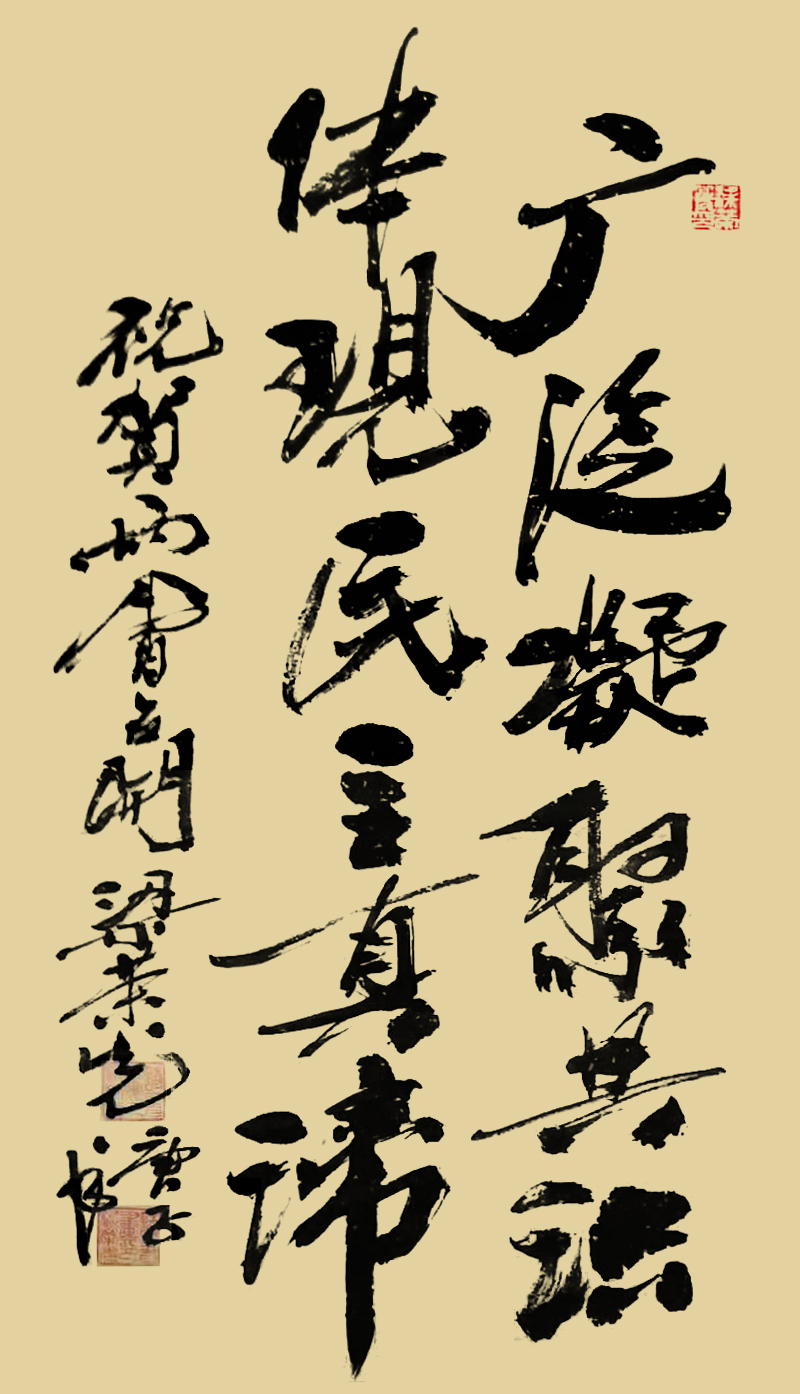 广泛凝聚共识
体现民主真谛
祝贺两会召开
梁荣先
庚子